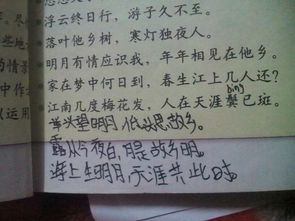 浮云终日行，游子久不至。
些地 落叶他乡树，寒灯独夜人。
的情景 明月有情应识我，年年相见在他乡。
中作 家在梦中何日到，春生江上几人还?
以运用 江南几度梅花发，人在天涯鬓已斑。
bìng
举头望明月 低头思故乡。
露从今夜白，月是故乡明。
海上生明月，天涯共此时